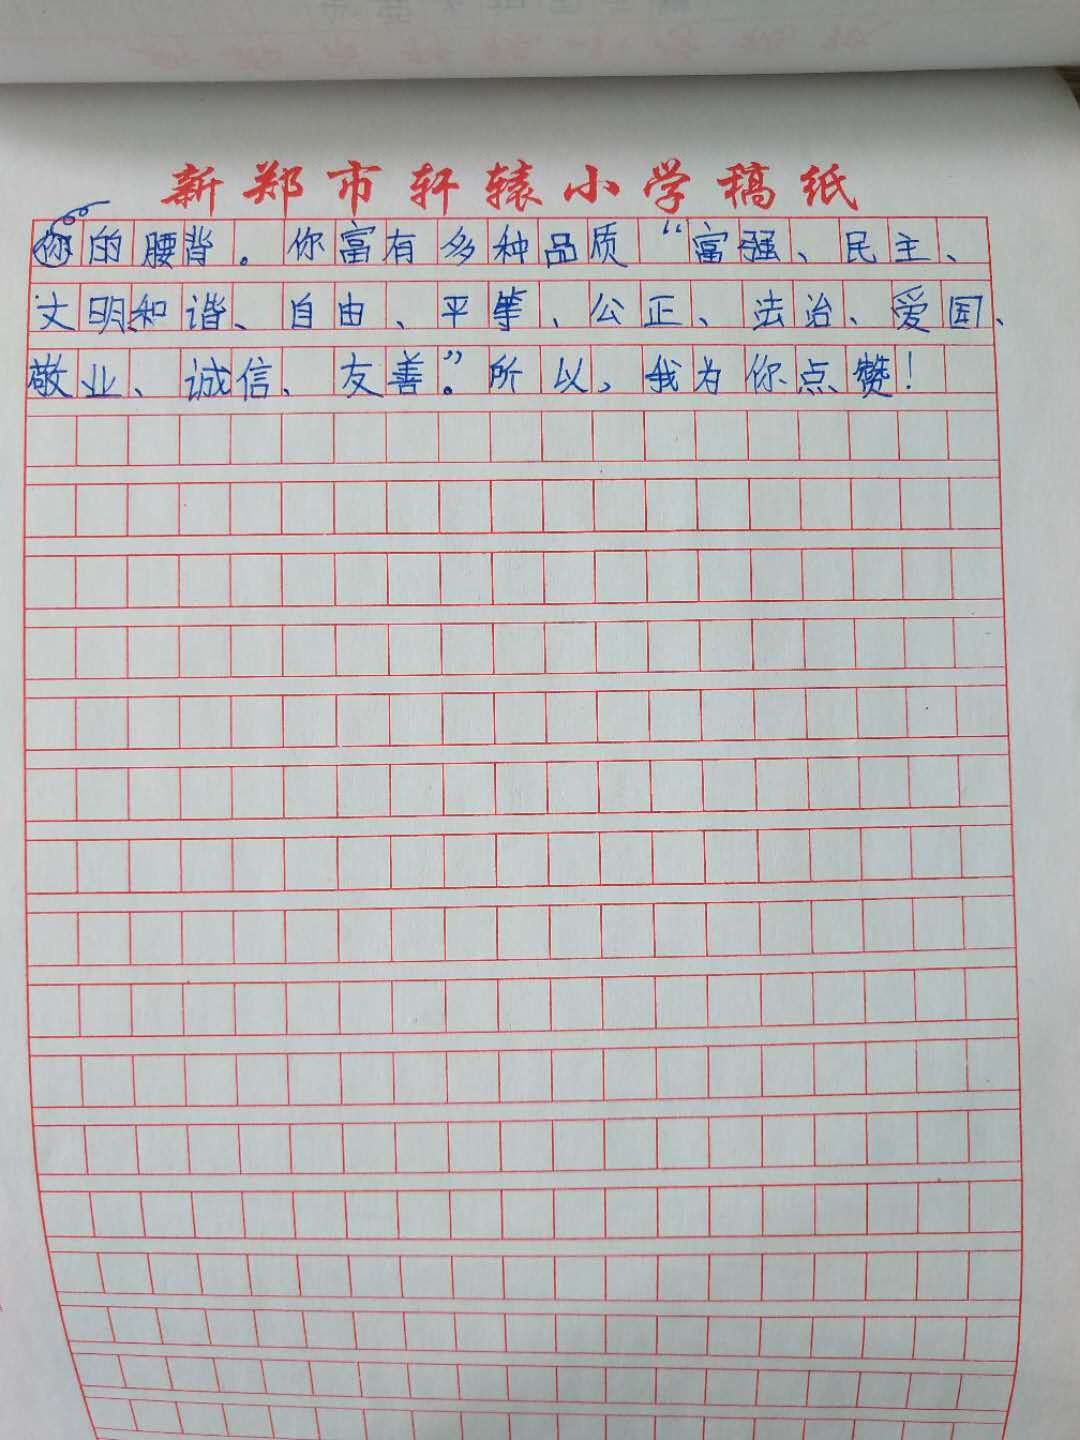 新郑市轩辕小学稿纸
的腰背。你富有多种品质“富强、民主、
文明、和谐、自由、平等、公正、法治、爱国、
敬业、诚信、友善”。所以，我为你点赞！